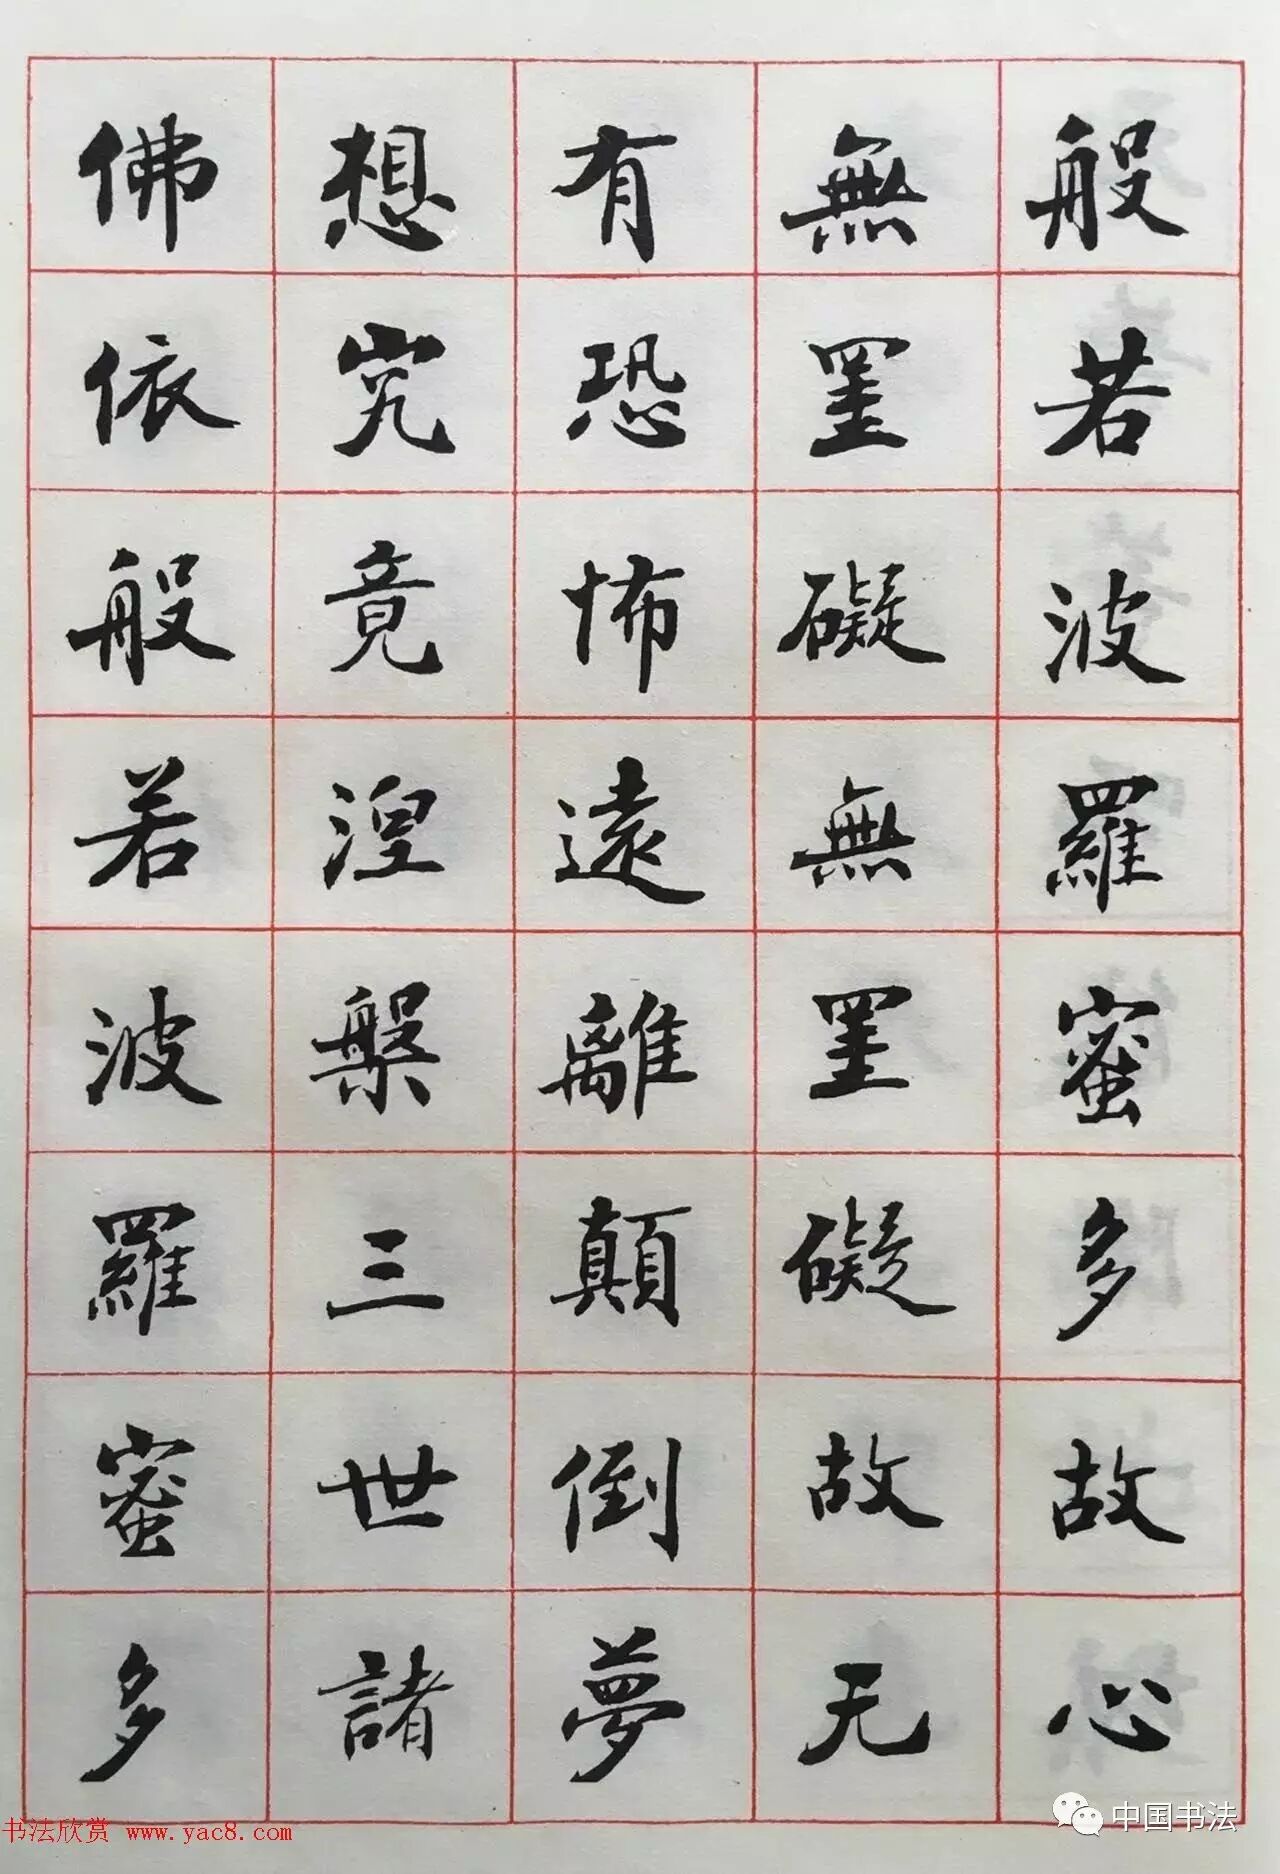 般若波羅蜜多故心
無罣礙無罣礙故无
有恐怖遠離顛倒夢
想究竟涅槃三世諸
佛依般若波羅蜜多
书法欣赏 www.yac8.com
中国书法